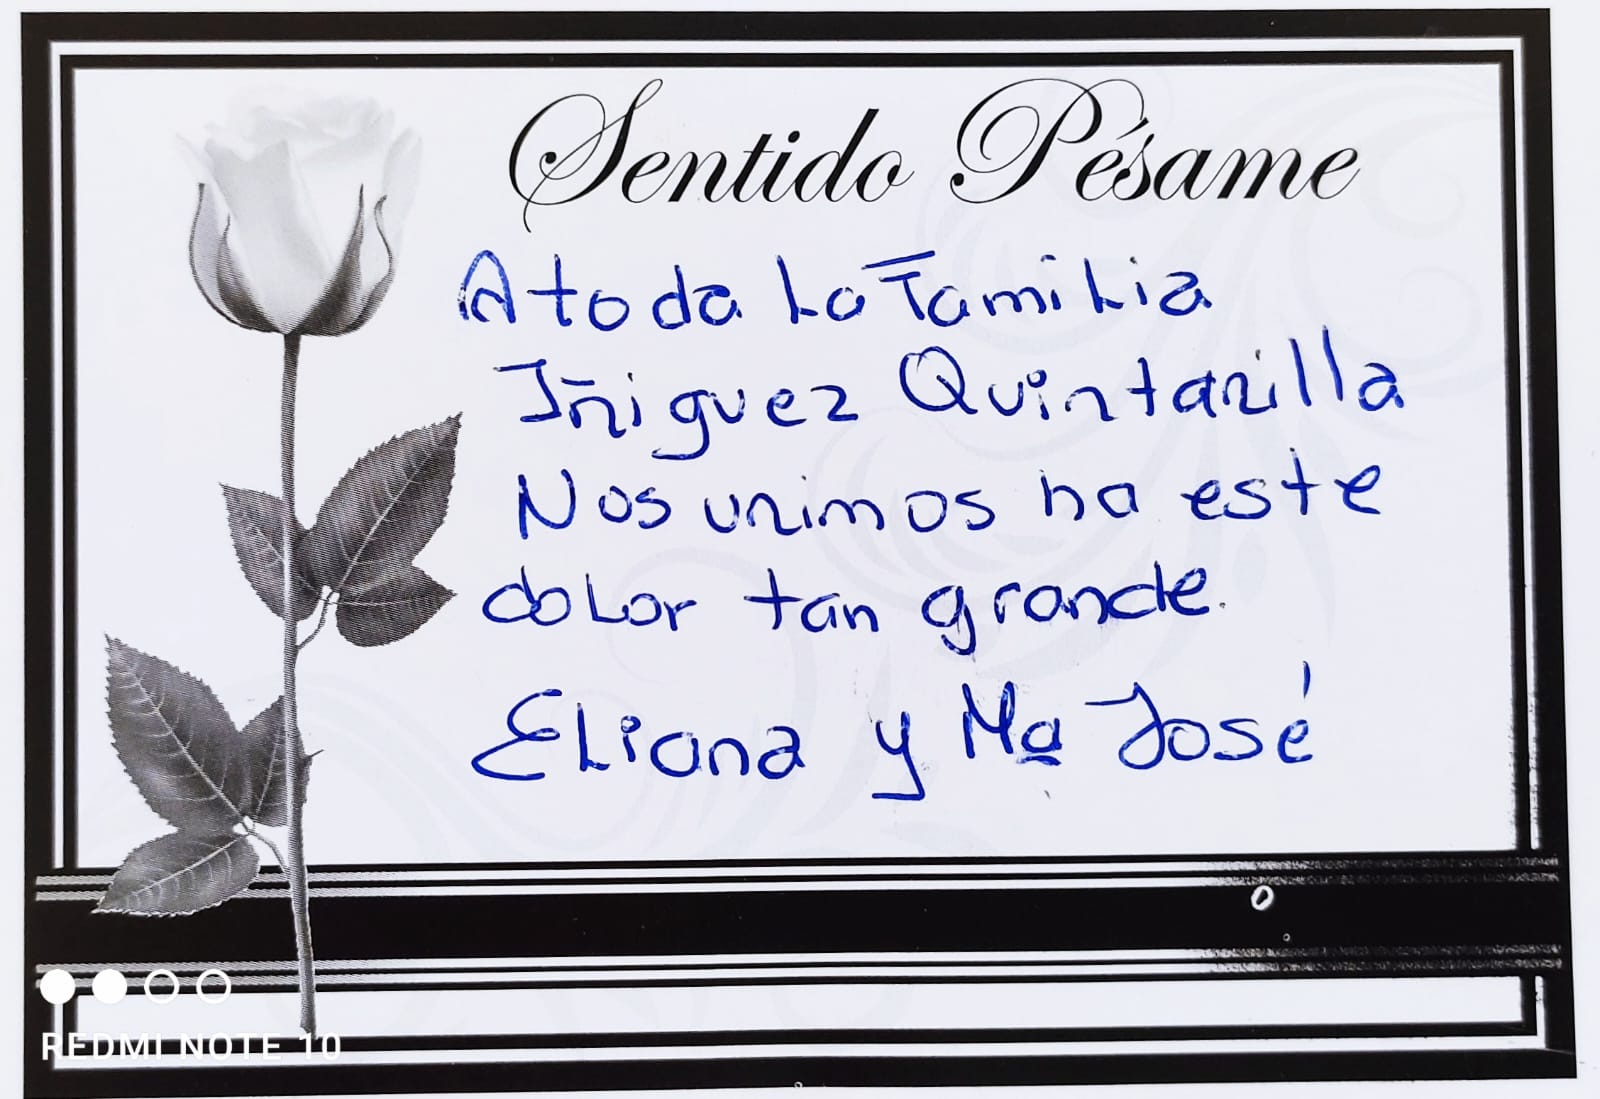 Sentido Pésame
A toda La Familia
Iñiguez Quintanilla
Nos unimos ha este
doLor tan grande.
ELiana y Ma José
REDMI NOTE 10